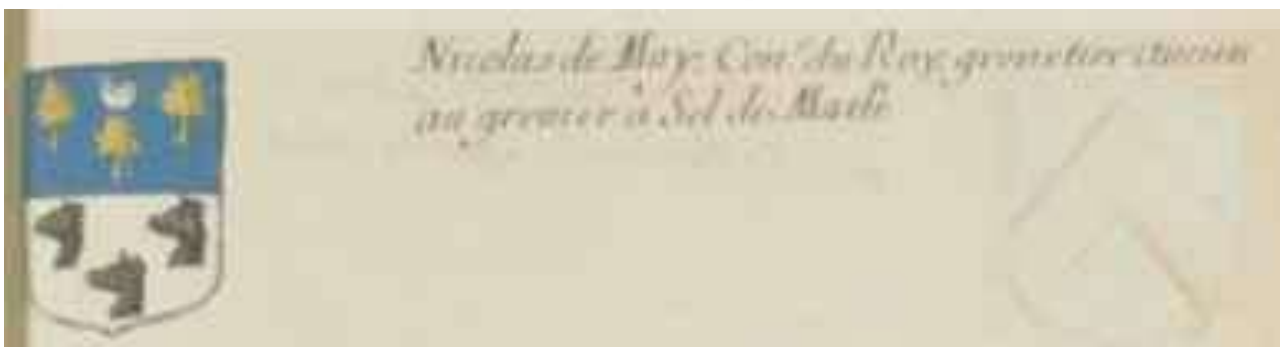 Nicolas de May, Con.er du Roy, grenetier ancien
au grenier à Sel de Marle